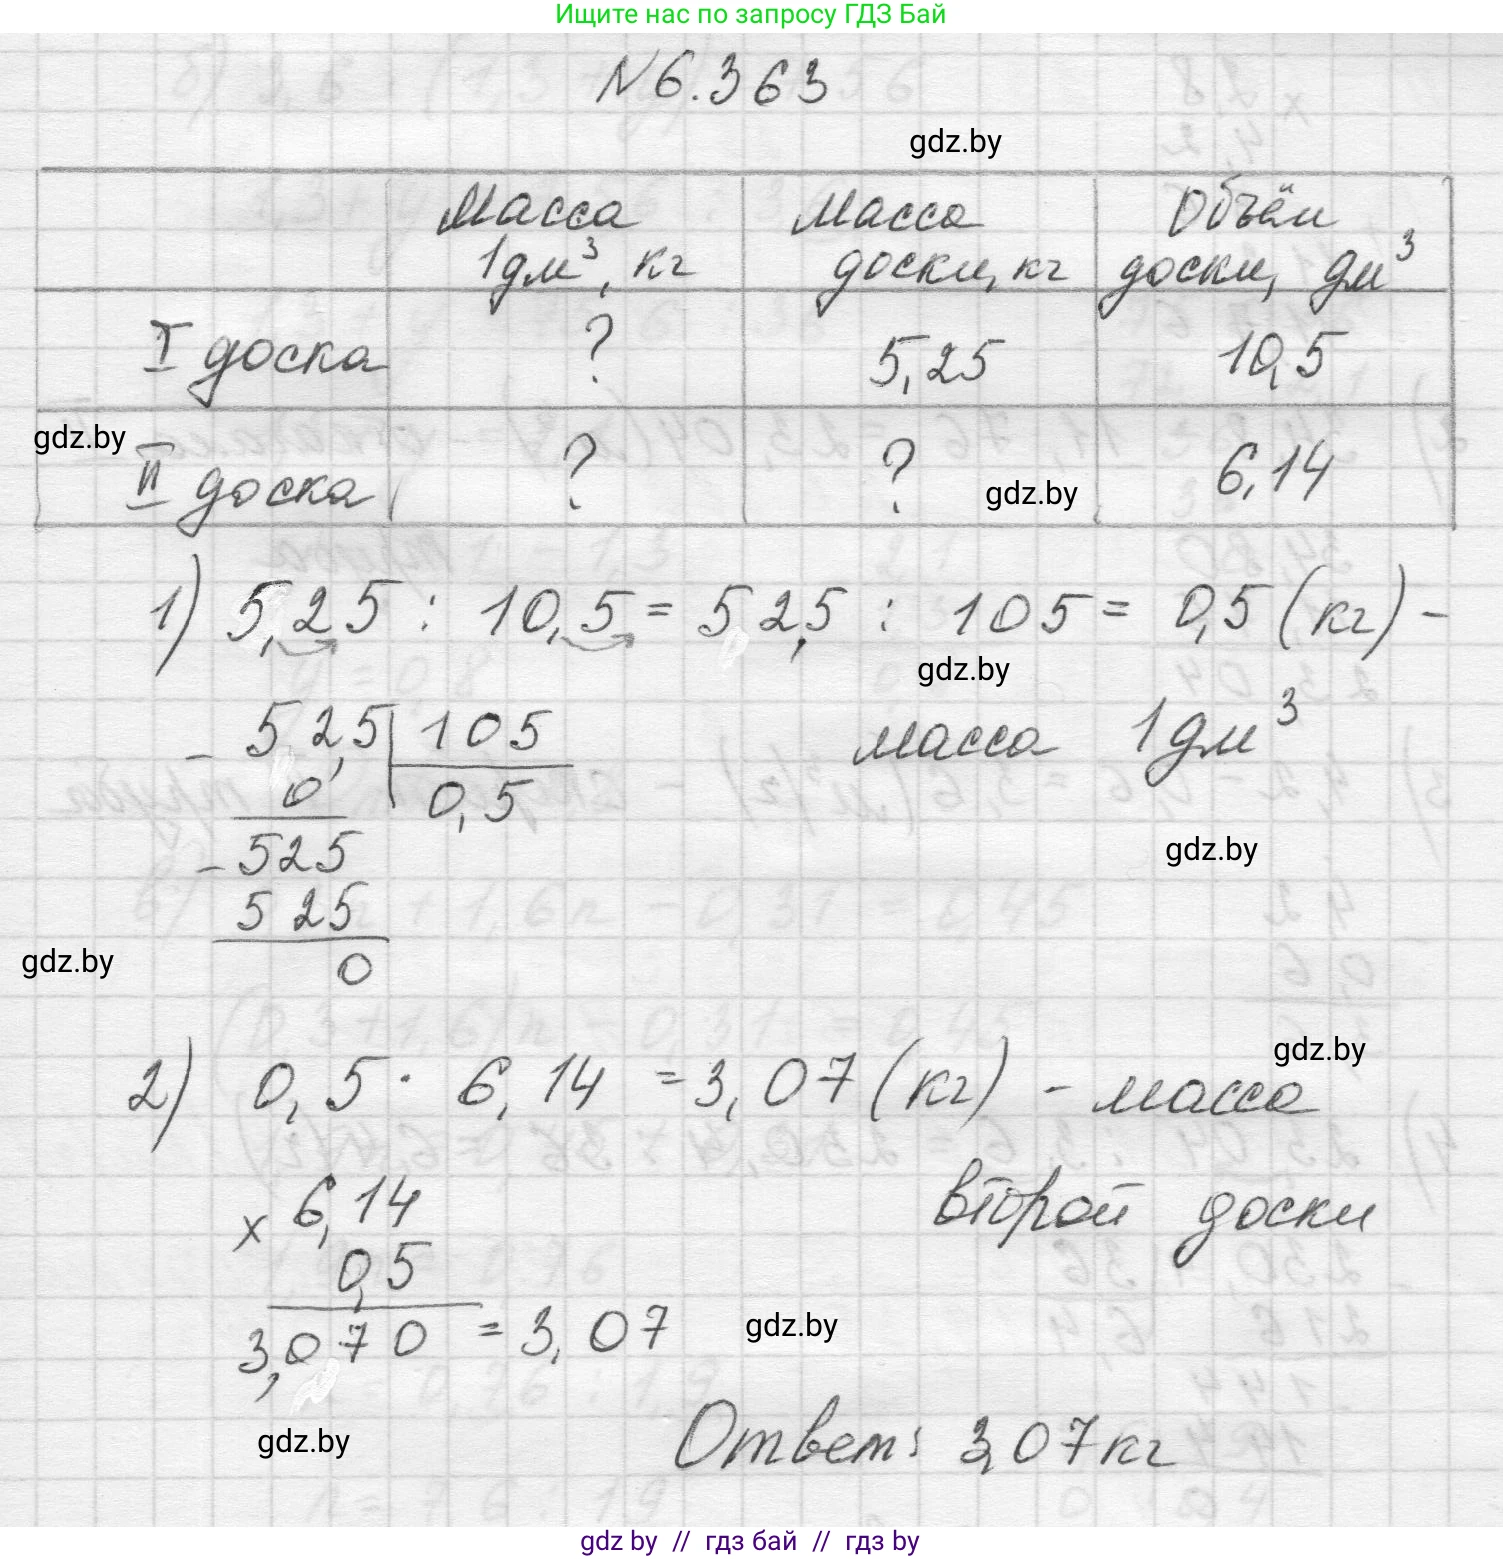 Ищите нас по запросу ГДЗ Бай
N 6.363
gdz.by
Масса 1дм³, кг
Масса доски, кг
Объём доски, дм³
I доска ? 5,25 10,5
gdz.by
II доска ? ? 6,14
gdz.by
1) 5,25 : 10,5 = 52,5 : 105 = 0,5 (кг) -
gdz.by
масса 1дм³
- 52,5 | 105
0 0,5
gdz.by
- 525
525
gdz.by
0
gdz.by
2) 0,5 · 6,14 = 3,07 (кг) - масса
второй доски
× 6,14
0,5
3,070 = 3,07
gdz.by
gdz.by
Ответ: 3,07 кг
gdz by // гдз бай // gdz by